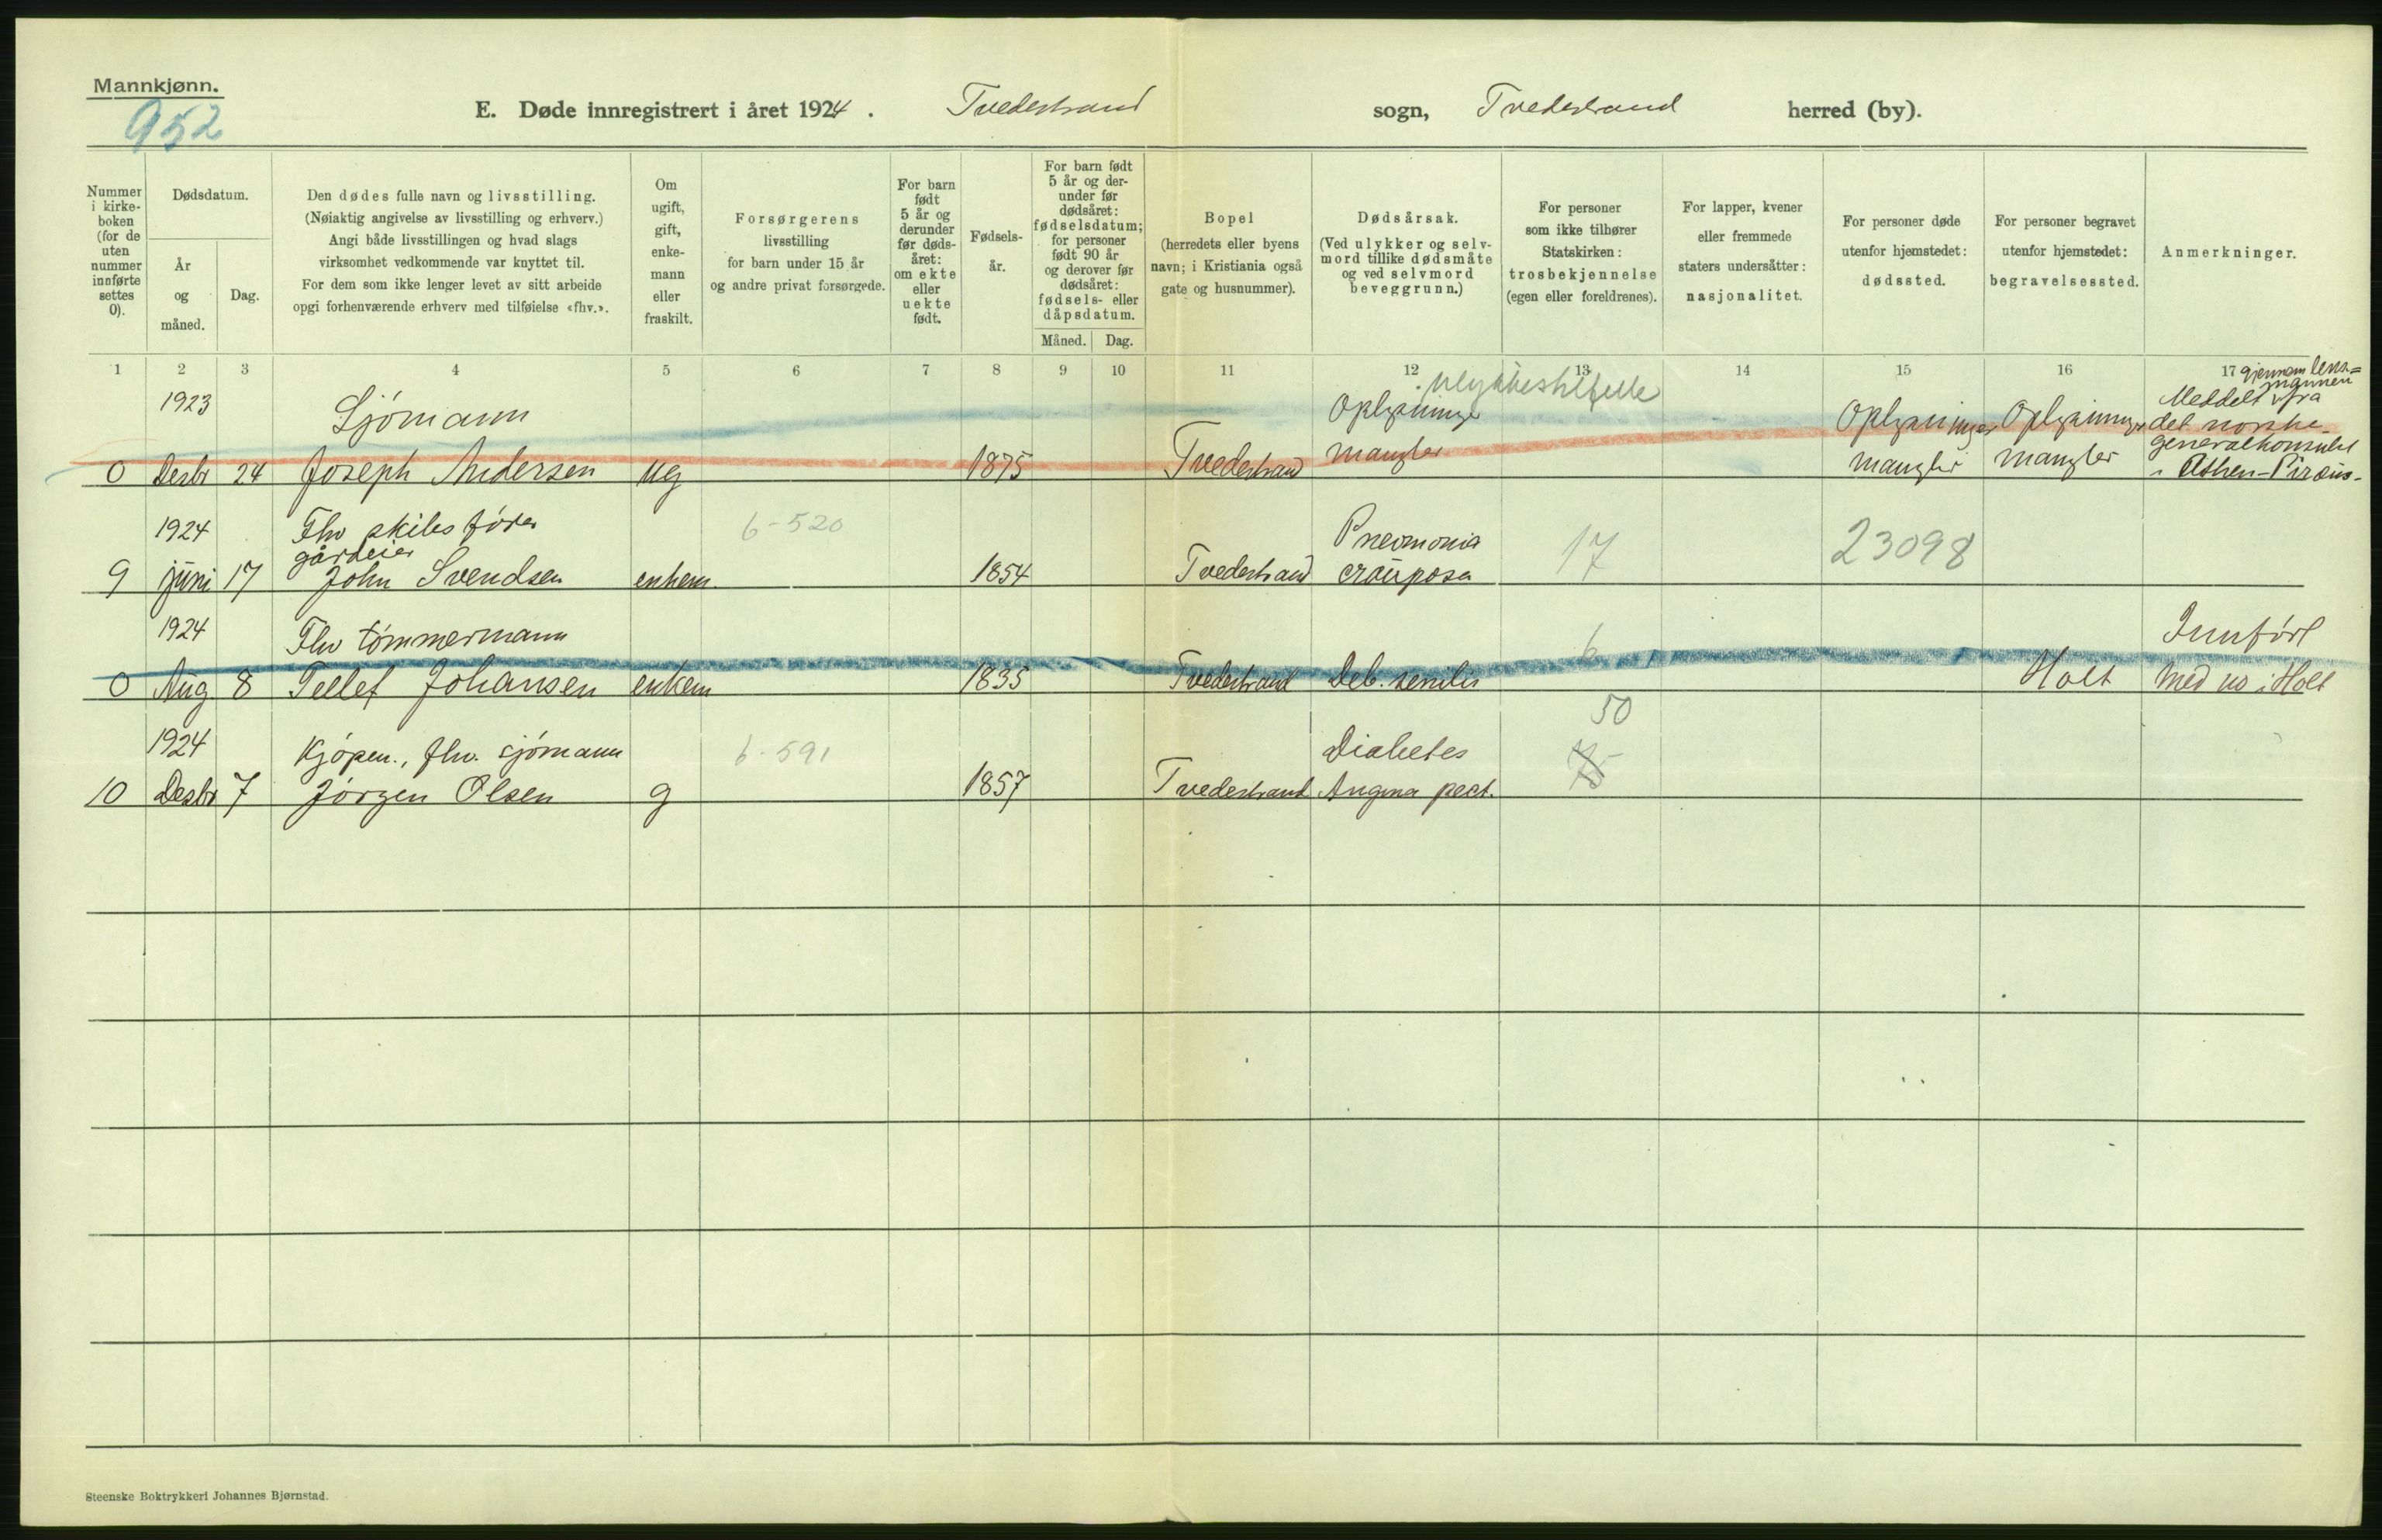 Mannkjønn.
952
E. Døde innregistrert i året 1924. Tvedestrand sogn, Tvedestrand herred (by).
Nummer i kirke-boken (for de uten nummer innførte settes 0).
Dødsdatum.
År og måned.
Dag.
Den dødes fulle navn og livsstilling.
(Nøiaktig angivelse av livsstilling og erhverv.)
Angi både livsstillingen og hvad slags
virksomhet vedkommende var knyttet til.
For dem som ikke lenger levet av sitt arbeide
opgi forhenværende erhverv med tilføielse «fhv.».
Om ugift, gift, enke-mann eller fraskilt.
Forsørgerens
livsstilling
for barn under 15 år
og andre privat forsørgede.
For barn født 5 år og derunder før døds-året: om ekte eller uekte født.
Fødsels-år.
For barn født 5 år og der-under før dødsåret: fødselsdatum; for personer født 90 år og derover før dødsåret: fødsels- eller dåpsdatum.
Måned. Dag.
Bopel
(herredets eller byens
navn; i Kristiania også
gate og husnummer).
Dødsårsak.
(Ved ulykker og selv-
mord tillike dødsmåte
og ved selvmord
beveggrunn.)
For personer
som ikke tilhører
Statskirken:
trosbekjennelse
(egen eller foreldrenes).
For lapper, kvener
eller fremmede
staters undersåtter:
nasjonalitet.
For personer døde
utenfor hjemstedet:
dødssted.
For personer begravet
utenfor hjemstedet:
begravelsessted.
Anmerkninger.
1 2 3 4 5 6 7 8 9 10 11 12 13 14 15 16 17
1923 Sjømann Oplysninger ulykkestilfelle Oplysninger Oplysninger
gjennem lens=
mannen
Meddelt fra
det norske
generalkonsulat
i Athen-Piræus.
0 Desbr 24 Joseph Andersen ug 1875 Tvedestrand mangler mangler mangler
1924 Fhv skibsfører 6-520 Pneomonia 17 23098
gårdeier
9 juni 17 John Svendsen enkem. 1854 Tvedestrand crouposa
1924 Fhv tømmermann 6 Innført
0 Aug. 8 Tellef Johansen enkem 1835 Tvedestrand Deb. senilis Holt med no i Holt
50
1924 Kjøpm., fhv. sjømann 6-591 Diabetes
10 Desbr 7 Jørgen Olsen g 1857 Tvedestrand Angina pect.
Steenske Boktrykkeri Johannes Bjørnstad.